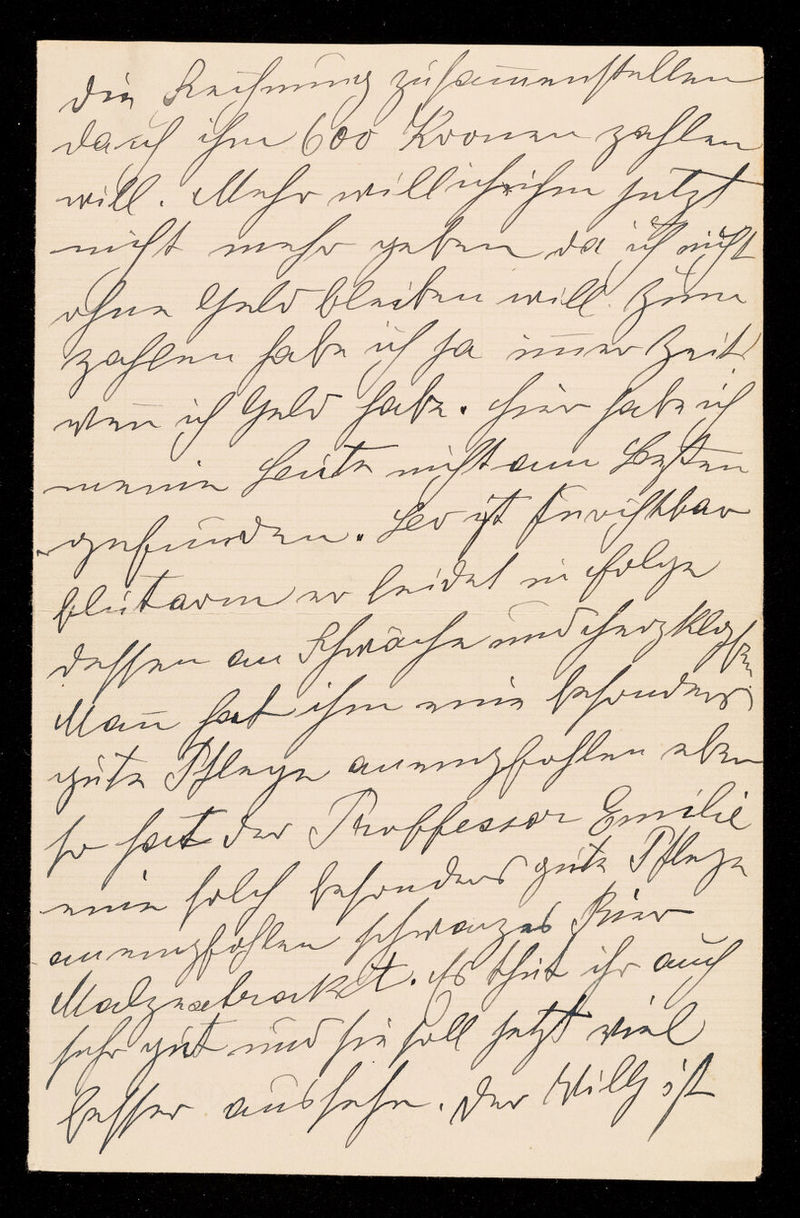 die Rechnung zusam̅enstellen
da ich ihm 600 Kronen zahlen
will. Mehr will ich ihm jetzt
nicht mehr geben da ich nicht
ohne Geld bleiben will. Zum
zahlen habe ich ja im̅er Zeit
wen̅ ich Geld habe. Hier habe ich
meine Leute nicht am Besten
gefunden. Leo ist furichtbar
blutarm er leidet in folge
dessen an Schwäche und Herzklopfen
Man̅ hat ihm eine besonders
gute Pflege anempfohlen eben
so hat der Proffessor Emilie
eine solch besonders gute Pflege
anempfohlen schwarzes Bier
Malzextrakt. Es thut ihr auch
sehr gut und sie soll jetzt viel
besser aussehn. Der Willy ist